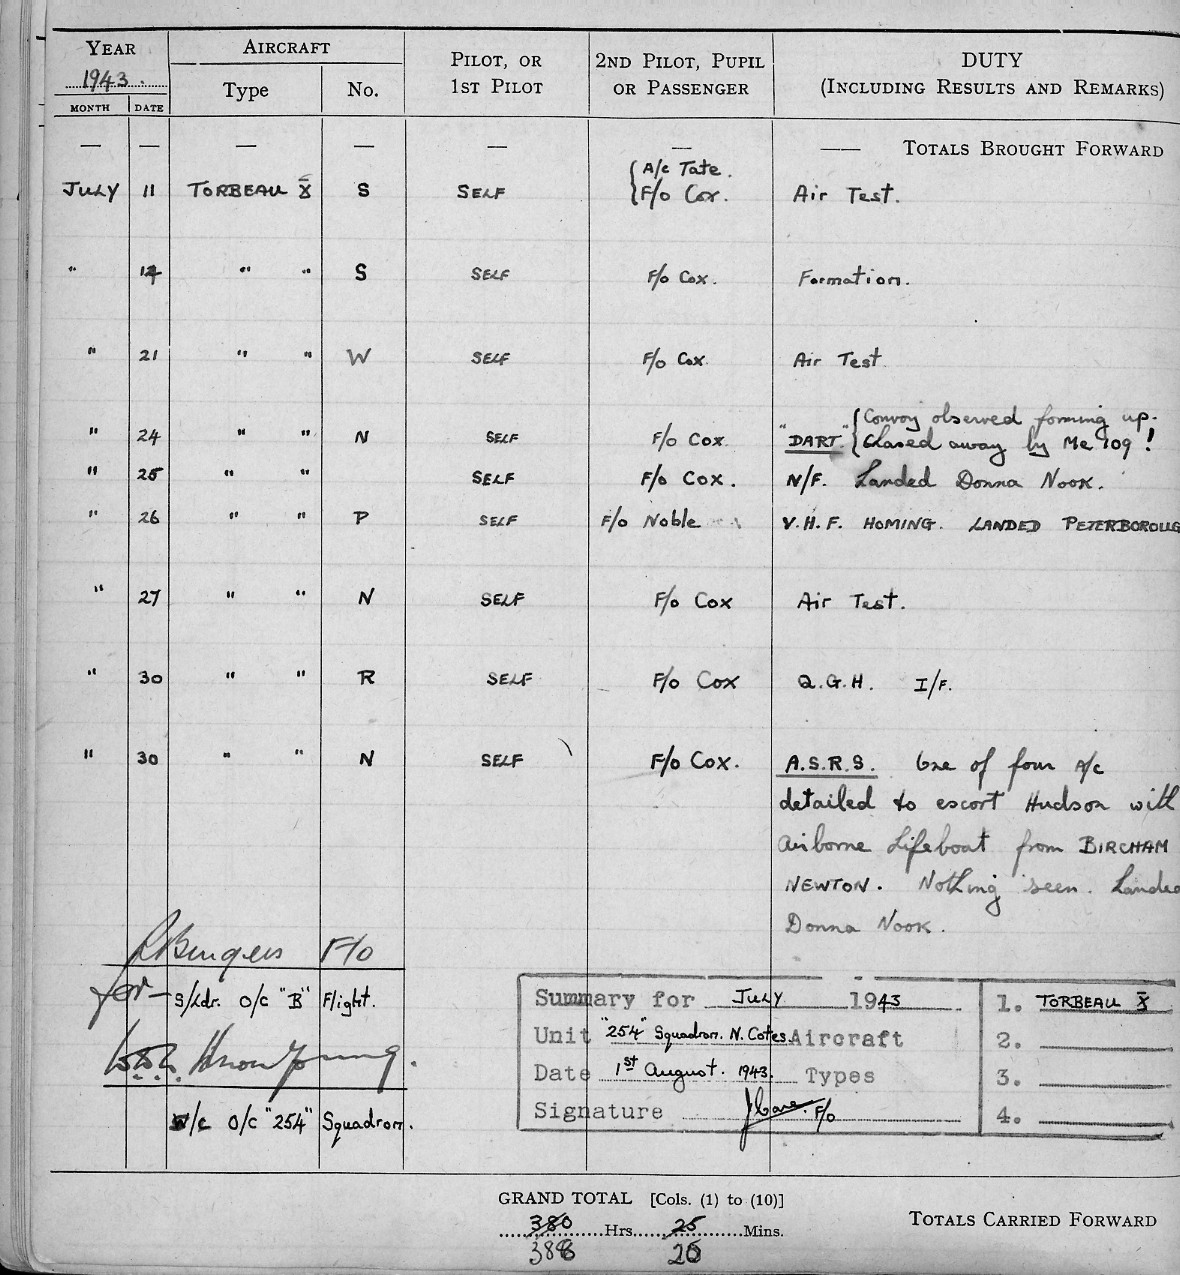 YEAR AIRCRAFT PILOT, OR 2ND PILOT, PUPIL DUTY
1943. Type No. 1ST PILOT OR PASSENGER (INCLUDING RESULTS AND REMARKS)
MONTH DATE
— — — — — — —— TOTALS BROUGHT FORWARD
A/c Tate.
JULY 11 TORBEAU X S SELF F/o Cox. Air Test.
" 14 " " S SELF F/o Cox. Formation.
" 21 " " W SELF F/o Cox. Air Test
Convoy observed forming up.
" 24 " " N SELF F/o Cox. "DART" Chased away by Me 109!
" 25 " " SELF F/o Cox. N/F. Landed Donna Nook.
" 26 " " P SELF F/o Noble V.H.F. HOMING. LANDED PETERBOROUG
" 27 " " N SELF F/o Cox Air Test.
" 30 " " R SELF F/o Cox Q.G.H. I/F.
" 30 " " N SELF F/o Cox. A.S.R.S. One of four A/c
detailed to escort Hudson with
Airborne Lifeboat from BIRCHAM
NEWTON. Nothing seen. Landed
Donna Nook.
Burgess F/o
for – S/Ldr. O/C "B" Flight.
W/C O/C "254" Squadron.
Summary for JULY 1943 1. TORBEAU X
Unit "254" Squadron. N. Cotes. Aircraft 2.
Date 1st August. 1943. Types 3.
Signature F/o 4.
GRAND TOTAL [Cols. (1) to (10)]
380 Hrs. 25 Mins. TOTALS CARRIED FORWARD
388 20